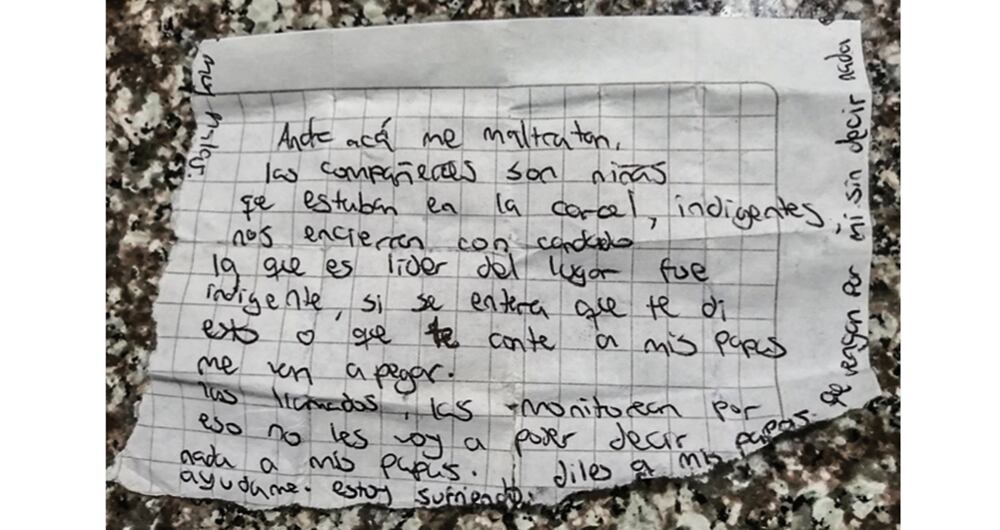 Ande acá me maltratan.
las compañeras son niñas
qe estuban en la carcel, indigentes,
nos encierran con candado
la que es lider del lugar fue
indigente, si se entera que te di
esto o que te conte a mis papas
me van a pegar.
las llamadas, las monitorean por
eso no les voy a poder decir
nada a mis papas. diles a mis papas. qe vengan por mi sin decir nada
ayudame. estoy sufriendo.
muy